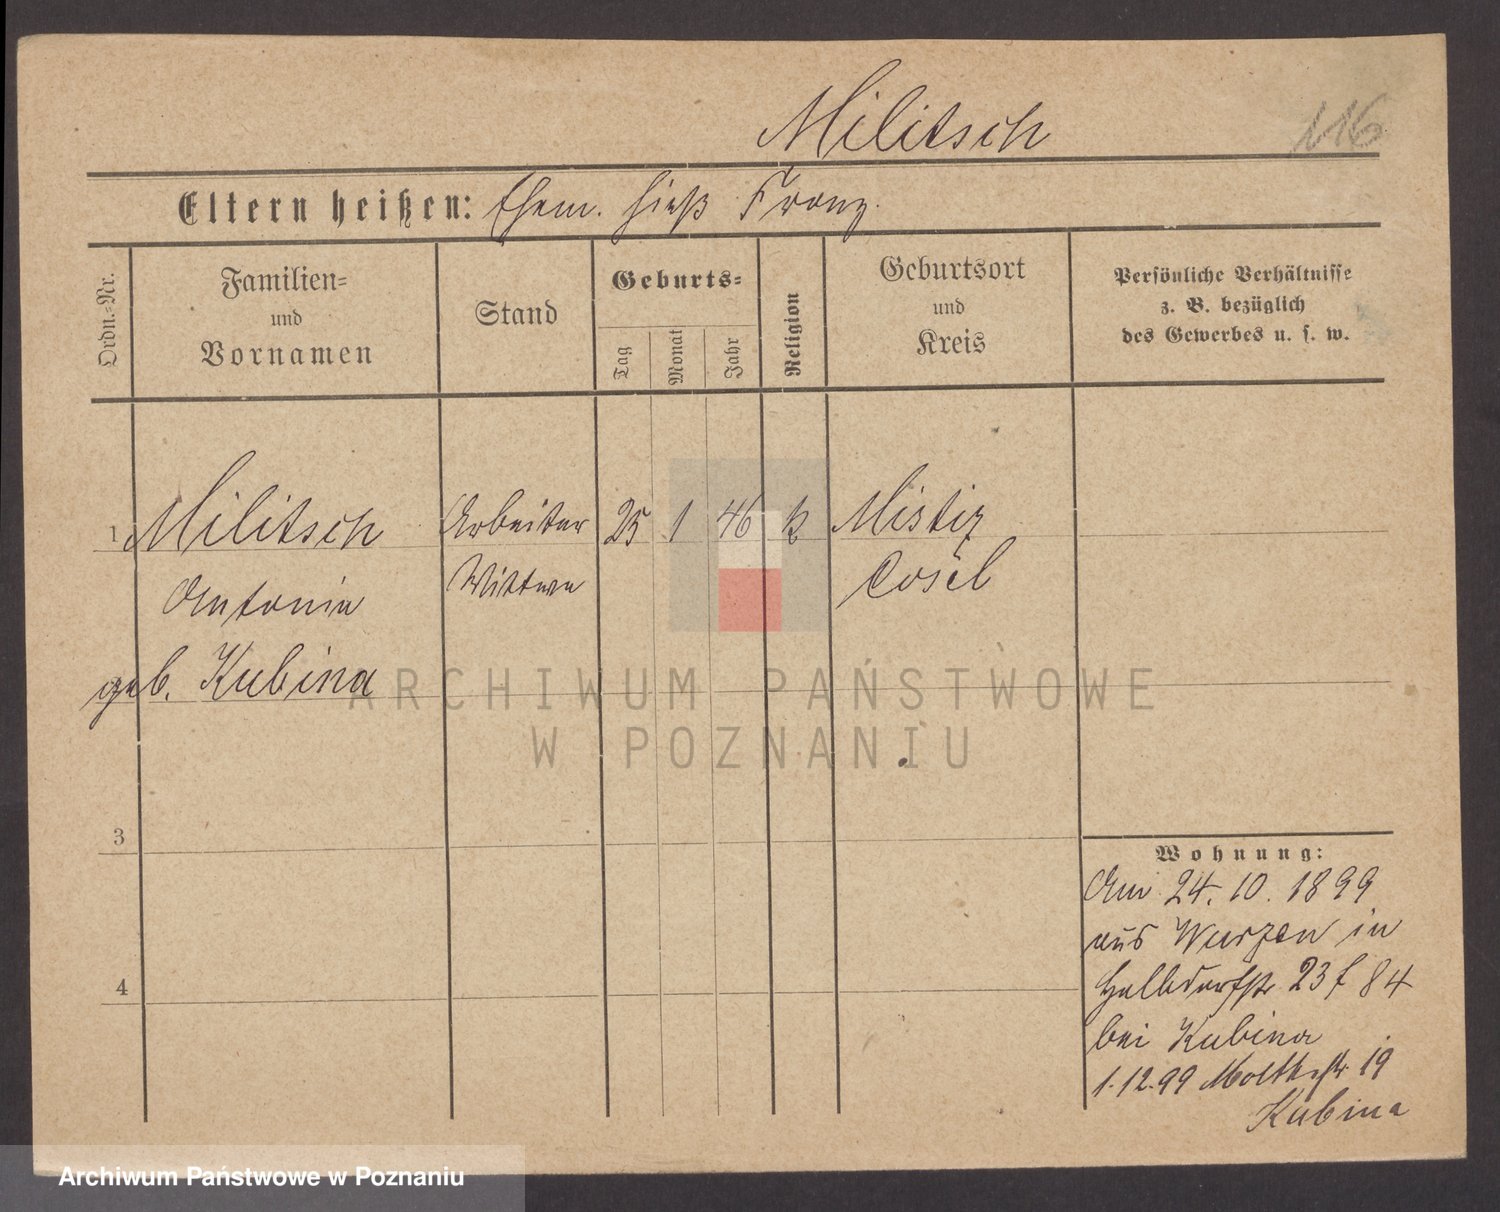 Militsch
116
Eltern heißen: Ehem. hieß Franz.
Ordn.-Nr.
Familien-
und
Vornamen
Stand
Geburts-
Tag
Monat
Jahr
Religion
Geburtsort
und
Kreis
Persönliche Verhältnisse
z. B. bezüglich
des Gewerbes u. s. w.
1 Militsch Arbeiter 25 1 46 k Mistiz
Antonie Wittwe Cosel
geb. Kubina
ARCHIWUM PAŃSTWOWE
W POZNANIU
3
Wohnung:
Am 24. 10. 1899
aus Wurzen in
Halbdorfstr 23 f 84
4
bei Kubina
1.12.99 Moltkestr 19
Kubina
Archiwum Państwowe w Poznaniu